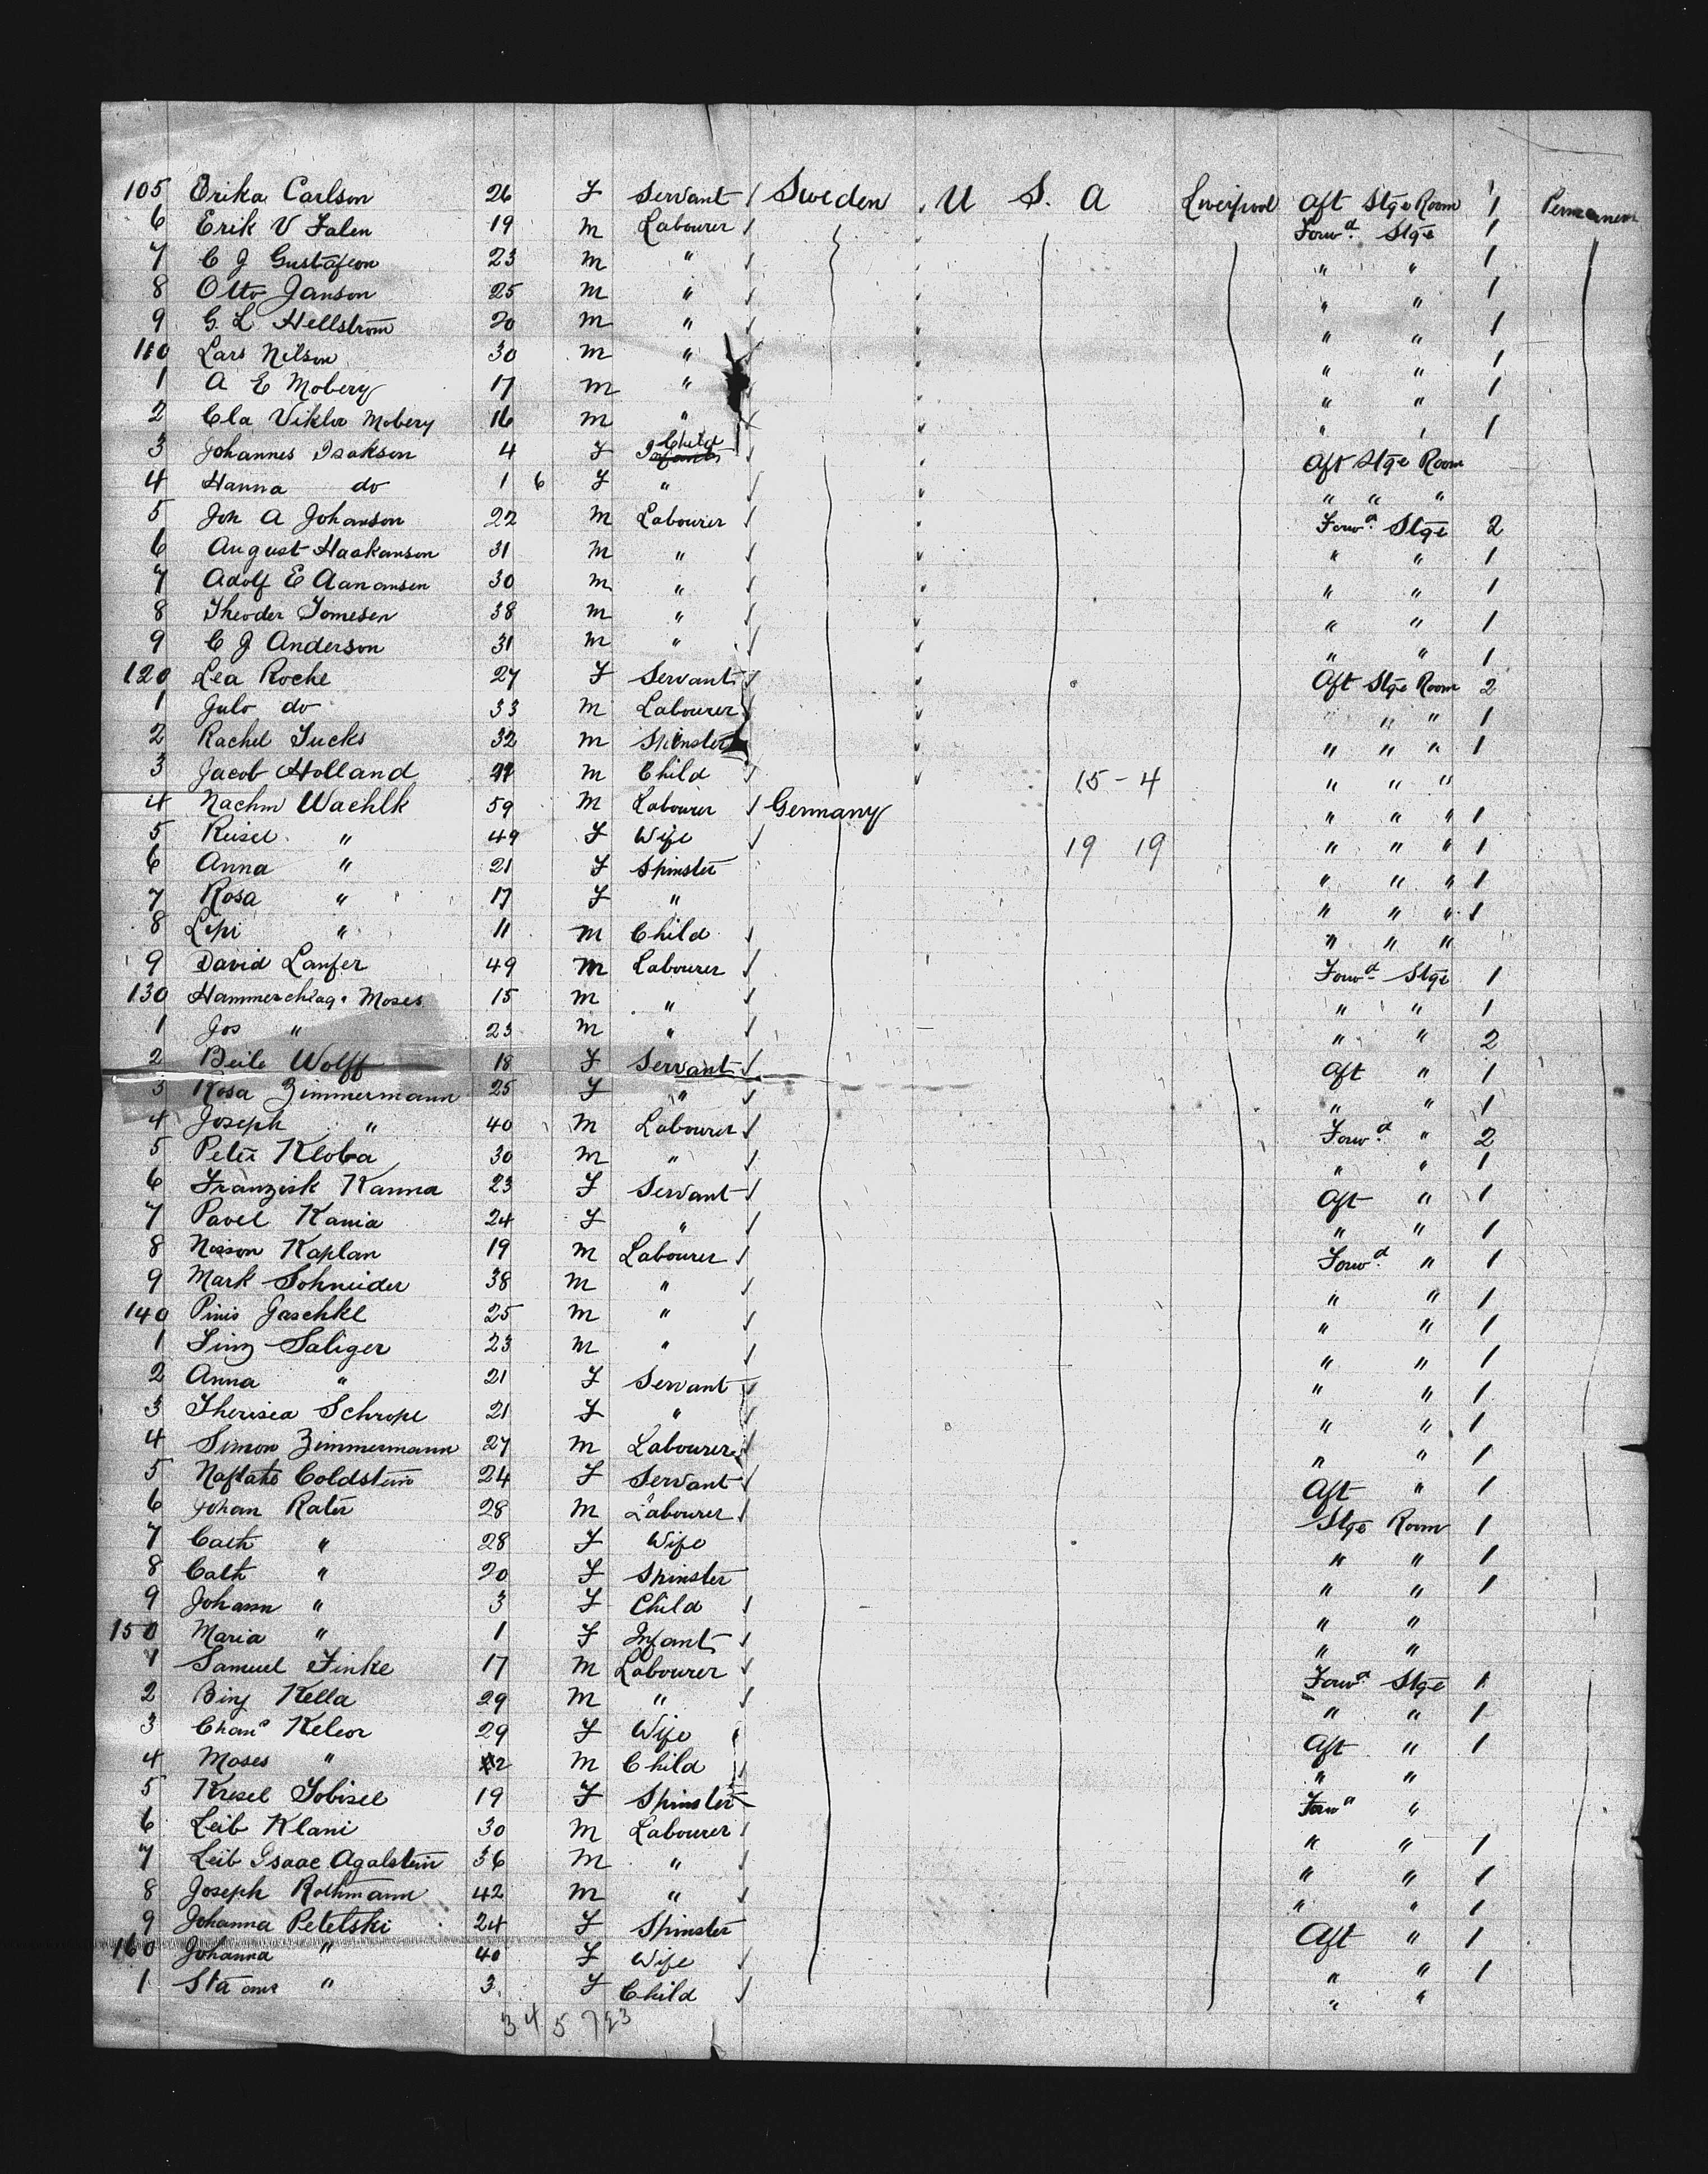 105 Erika Carlson 26 F Servant Sweden U S. A Liverpool Aft Stge Room 1 Permanent
6 Erik V Falen 19 M Labourer Forwd. Stge 1
7 C J Gustafson 23 M " " " 1
8 Otto Janson 25 M " " " 1
9 G. L Hellstrom 20 M " " " 1
110 Lars Nilson 30 M " " " 1
1 A E Mobery 17 M " " " 1
2 Cla Viktor Mobery 16 M " " " 1
3 Johannes Isakson 4 F Child Aft Stge Room
4 Hanna do 1 6 F " " " "
5 Joh A Johanson 22 M Labourer Forwd. Stge 2
6 August Haakanson 31 M " " " 1
7 Adolf E Aanansen 30 M " " " 1
8 Theoder Tomesen 38 M " " " 1
9 C J Anderson 31 M " " " 1
120 Lea Roche 27 F Servant Aft Stge Room 2
1 Julo do 33 M Labourer " " " 1
2 Rachel Fucks 32 M Spinster " " " 1
3 Jacob Holland M Child 15-4 " " "
4 Nachm Wachlk 59 M Labourer Germany " " " 1
5 Reisel " 49 F Wife 19 19 " " " 1
6 Anna " 21 F Spinster " " " 1
7 Rosa " 17 F " " " " 1
8 Lepi " 11 M Child " " "
9 David Laufer 49 M Labourer Forwd. Stge 1
130 Hammerchlag. Moses 15 M " " " 1
1 Jos " 23 M " " " 2
2 Beile Wolff 18 F Servant Aft " 1
3 Rosa Zimmermann 25 F " " " 1
4 Joseph " 40 M Labourer Forwd. " 2
5 Peter Kloba 30 M " " " 1
6 Franzisk Kanna 23 F Servant Aft " 1
7 Pavel Kania 24 F " " " 1
8 Nisson Kaplan 19 M Labourer Forwd. " 1
9 Mark Schneider 38 M " " " 1
140 Pinis Jaschkl 25 M " " " 1
1 Sinz Saliger 23 M " " " 1
2 Anna " 21 F Servant " " 1
3 Therisea Schrope 21 F " " " 1
4 Simon Zimmermann 27 M Labourer " " 1
5 Naftaho Coldstein 24 F Servant Aft " 1
6 Johan Rater 28 M Labourer Stge Room 1
7 Cath " 28 F Wife " " 1
8 Cath " 20 F Spinster " " 1
9 Johann " 3 F Child " "
150 Maria " 1 F Infant " "
1 Samuel Finke 17 M Labourer Forwd. Stge 1
2 Binj Kella 29 M " " " 1
3 Chana Keleor 29 F Wife Aft " 1
4 Moses " 2 M Child " "
5 Kresel Tobisel 19 F Spinster Forwd "
6 Leib Klani 30 M Labourer " " 1
7 Leib Isaac Agalstein 36 M " " " 1
8 Joseph Rothmann 42 M " " " 1
9 Johanna Petelski 24 F Spinster Aft " 1
160 Johanna " 40 F Wife " " 1
1 " 3 F Child " "
3 4 5